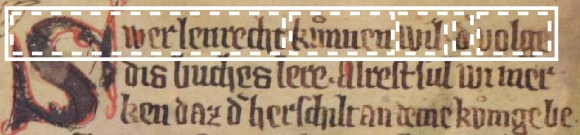 Swer lenrecht kůnnen wil d' volge
dis buches lere. Alrest sul wi mer
ken daz d' herschilt an deme kůnige be